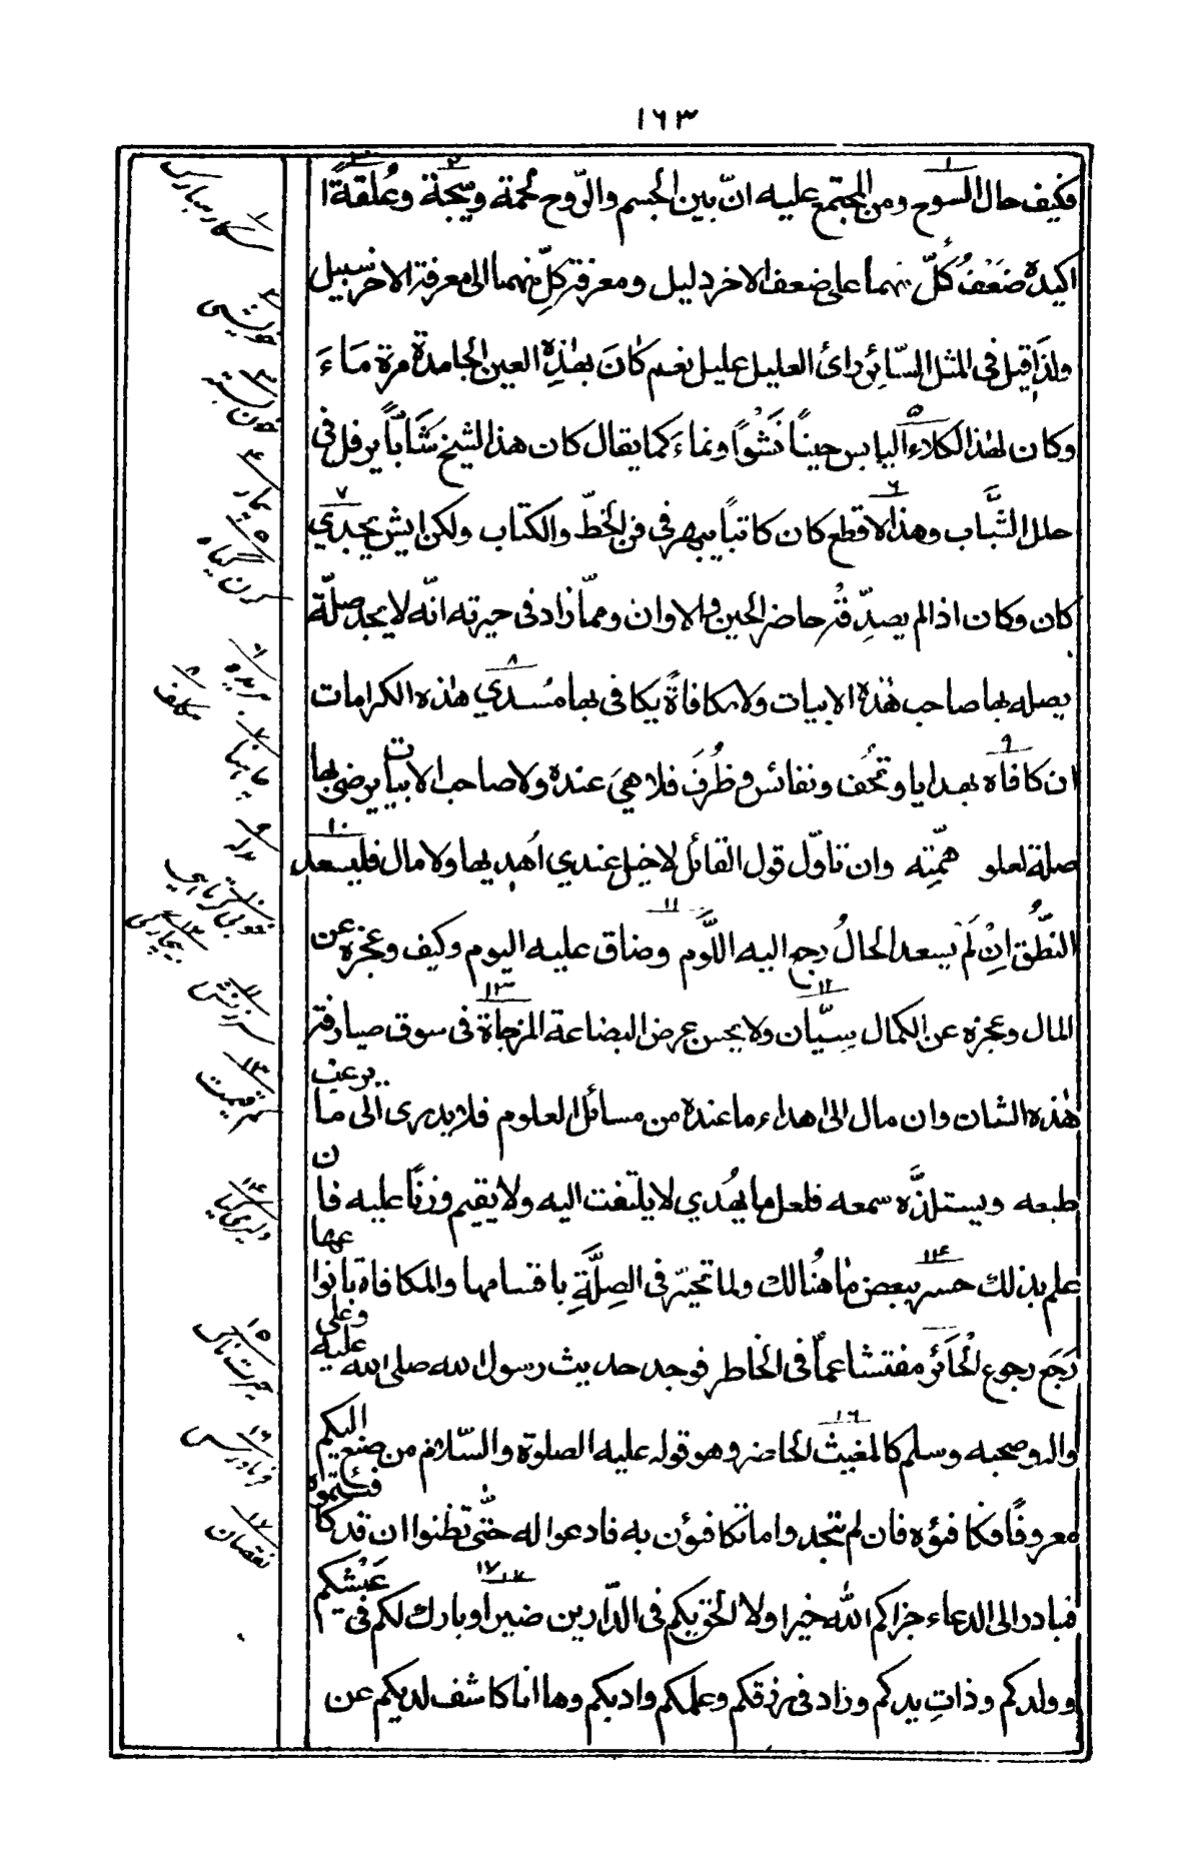 ١٦٣
فكيف حال السوح ومن المجتمع عليه انّ بين الجسم والرّوح لحمة وسيجة وعُلقةً ا
اكيدة ضَعْفُ كُلّ منهما على ضعف الاخر دليل ومعرفة كلّ منهما الى معرفة الاخر سبيل
ولذا قيل فى المثل السّائر رائ العليل عليل نعم كانَ بهٰذِهِ العين الجامدة مرة مَاءَ
وكان لهٰذا الكلاء اليابس حيناً نَشْواً ونماءَ كما يقال كان هذا الشيخ شَابّاً يرفل فى
حلل الشّباب وهذا الاقطع كان كاتباً يبهر فى فن الخطّ والكتاب ولكن ايش يجدي
كان وكان اذا لم يصدّقْه حاضر الحين والاوان وممّا زاد فى حيرته انّه لا يجد صلّة
يصله بها صاحب هٰذه الابيات ولا مكافاةً يكافى بها مُسدي هٰذه الكرامات
ان كافاه بهدايا وتحُف ونفائس وظُرفَ فلا هيَ عنده ولا صاحب الابيات يرضى بها
صلة لعلو همّته وان تاوّل قول القائل لا خيل عندي اُهديها ولا مال فليسعد
النّطق اِنْ لَمْ يسعد الحالُ رجع اليه اللّوم وضاق عليه اليوم وكيف وعجزه عن
المال وعجزه عن الكمال سِيّان ولا يحسن عرض البضاعة المزجاة فى سوق صيارفة
هٰذه الشان وان مال الى اهداء ما عنده من مسائل العلوم فلا يدرى الى ما يرغب
طبعه ويستلذّه سمعه فلعل ما يُهدي لا يلتفت اليه ولا يقيم وزنًا عليه فان
علم بذلك حسر ببعض ما هُنالك ولما تحيّر فى الصِلّةِ باقسامها والمكافاة بانواعها
رَجَع رجوع الحَائر مفتشا عمّا فى الخاطر فوجد حديث رسول الله صلى الله عليه وعلى
واله وصحبه وسلم كالمغيث الحاضر وهو قوله عليه الصلوة والسّلام من صنع اليكم
معروفًا فكافئؤه فان لم تجدوا ما تكافئؤن به فادعوا له حتّى تظنوا ان قد كافئتموه
فبادر الى الدعاء جزاكم الله خيرا ولا الحق بكم فى الدّارين ضيرا وبارك لكم فى عَيْشكم
وولدكم وذاتِ يدكم وزاد فى رزقكم وعلمكم وادبكم وها انا كاشف لديكم عن
٣
٤
بيمار
٥
٨
مكافات
٧
٩
بدله
١٢
١١
سرزنش
١٣
كم قيمت
١٤
١٥
حيرت ناك
١٦
فريادرس
١٧
نقصان